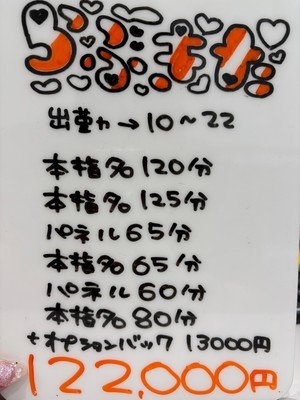 出勤→10~22
本指名120分
本指名125分
パネル65分
本指名65分
パネル60分
本指名80分
+オプションバック 13000円
122,000円